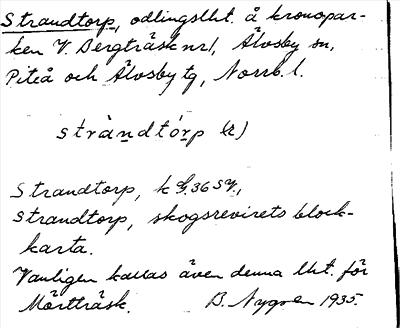 Strandtorp, odlingslht. å kronopar-
ken V. Bergträsk nr 1, Älvsby sn,
Piteå och Älvsby tg, Norrb. l.
stràndtórp (2)
Strandtorp, k
Strandtorp, skogsrevirets block-
karta.
Vanligen kallas även denna lht. för
Mörtträsk. B. Nygren 1935.